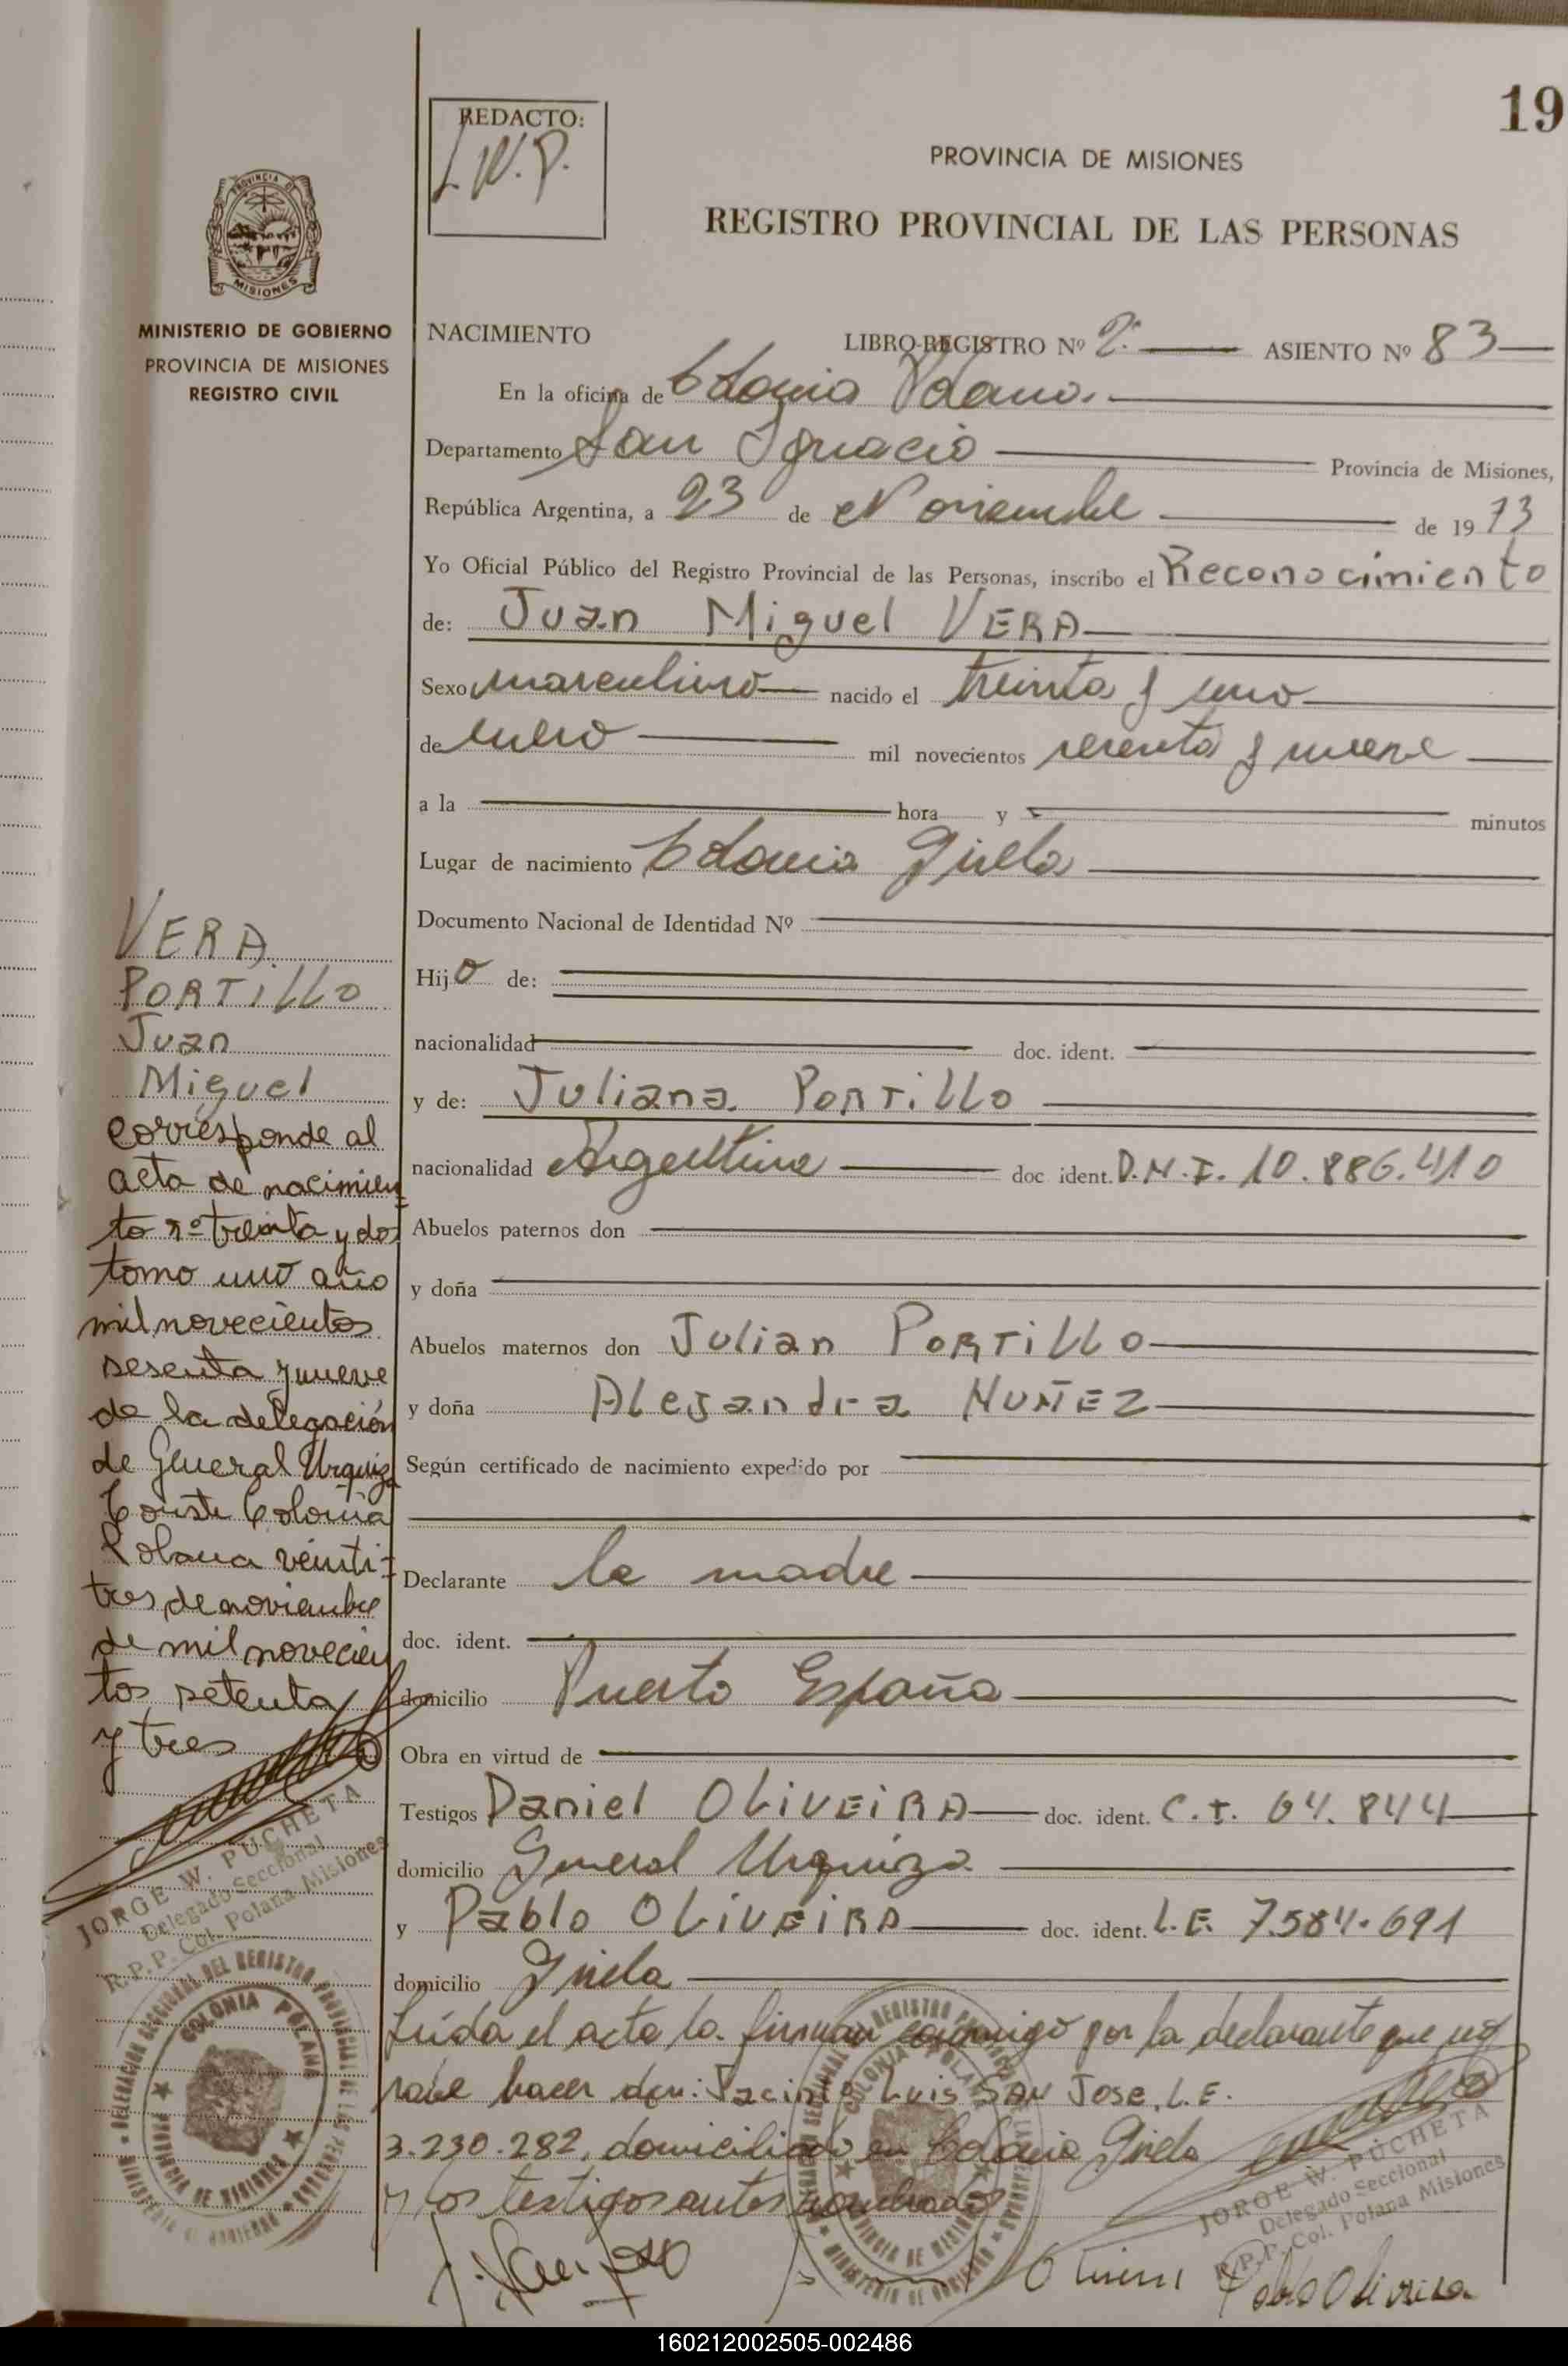 19
REDACTO:
L.W.P.
PROVINCIA DE MISIONES
REGISTRO PROVINCIAL DE LAS PERSONAS
PROVINCIA DE
MISIONES
MINISTERIO DE GOBIERNO
PROVINCIA DE MISIONES
REGISTRO CIVIL
NACIMIENTO LIBRO-REGISTRO Nº 2º ASIENTO Nº 83
En la oficina de Colonia Polana
Departamento San Ignacio Provincia de Misiones,
República Argentina, a 23 de Noviembre de 1973
Yo Oficial Público del Registro Provincial de las Personas, inscribo el Reconocimiento
de: Juan Miguel VERA
Sexo masculino nacido el treinta y uno
de enero mil novecientos sesenta y nueve
a la hora y minutos
Lugar de nacimiento Colonia Gisela
Documento Nacional de Identidad Nº
Hijo de:
nacionalidad doc. ident.
y de: Juliana PORTILLO
nacionalidad Argentina doc ident. D.N.I. 10.886.410
Abuelos paternos don
y doña
Abuelos maternos don Julian PORTILLO
y doña ALEJandra NUÑEZ
Según certificado de nacimiento expedido por
Declarante la madre
doc. ident.
domicilio Puerto España
Obra en virtud de
Testigos Daniel OLIVEIRA doc. ident. C.I. 64.844
domicilio General Urquiza
y Pablo OLIVEIRA doc. ident. L.E. 7.584.691
domicilio Gisela
Leída el acta la firman conmigo por la declarante que no
sabe hacer don: Jacinto Luis SAN Jose, L.E.
3.230.282, domiciliado en Colonia Gisela
y los testigos antes nombrados
VERA
PORTILLO
Juan
Miguel
corresponde al
acta de nacimien
to nº treinta y dos
tomo uno año
mil novecientos
sesenta y nueve
de la delegación
de General Urquiza
Conste Colonia
Polana veinti-
tres de noviembre
de mil novecien
tos setenta
y tres
JORGE W. PUCHETA
Delegado Seccional
R.P.P. Col. Polana Misiones
DELEGACION SECCIONAL DEL REGISTRO PROVINCIAL DE LAS PERSONAS
COLONIA POLANA
PROVINCIA DE MISIONES
MINISTERIO DE GOBIERNO
JORGE W. PUCHETA
Delegado Seccional
R.P.P. Col. Polana Misiones
Pablo Oliveira
160212002505-002486